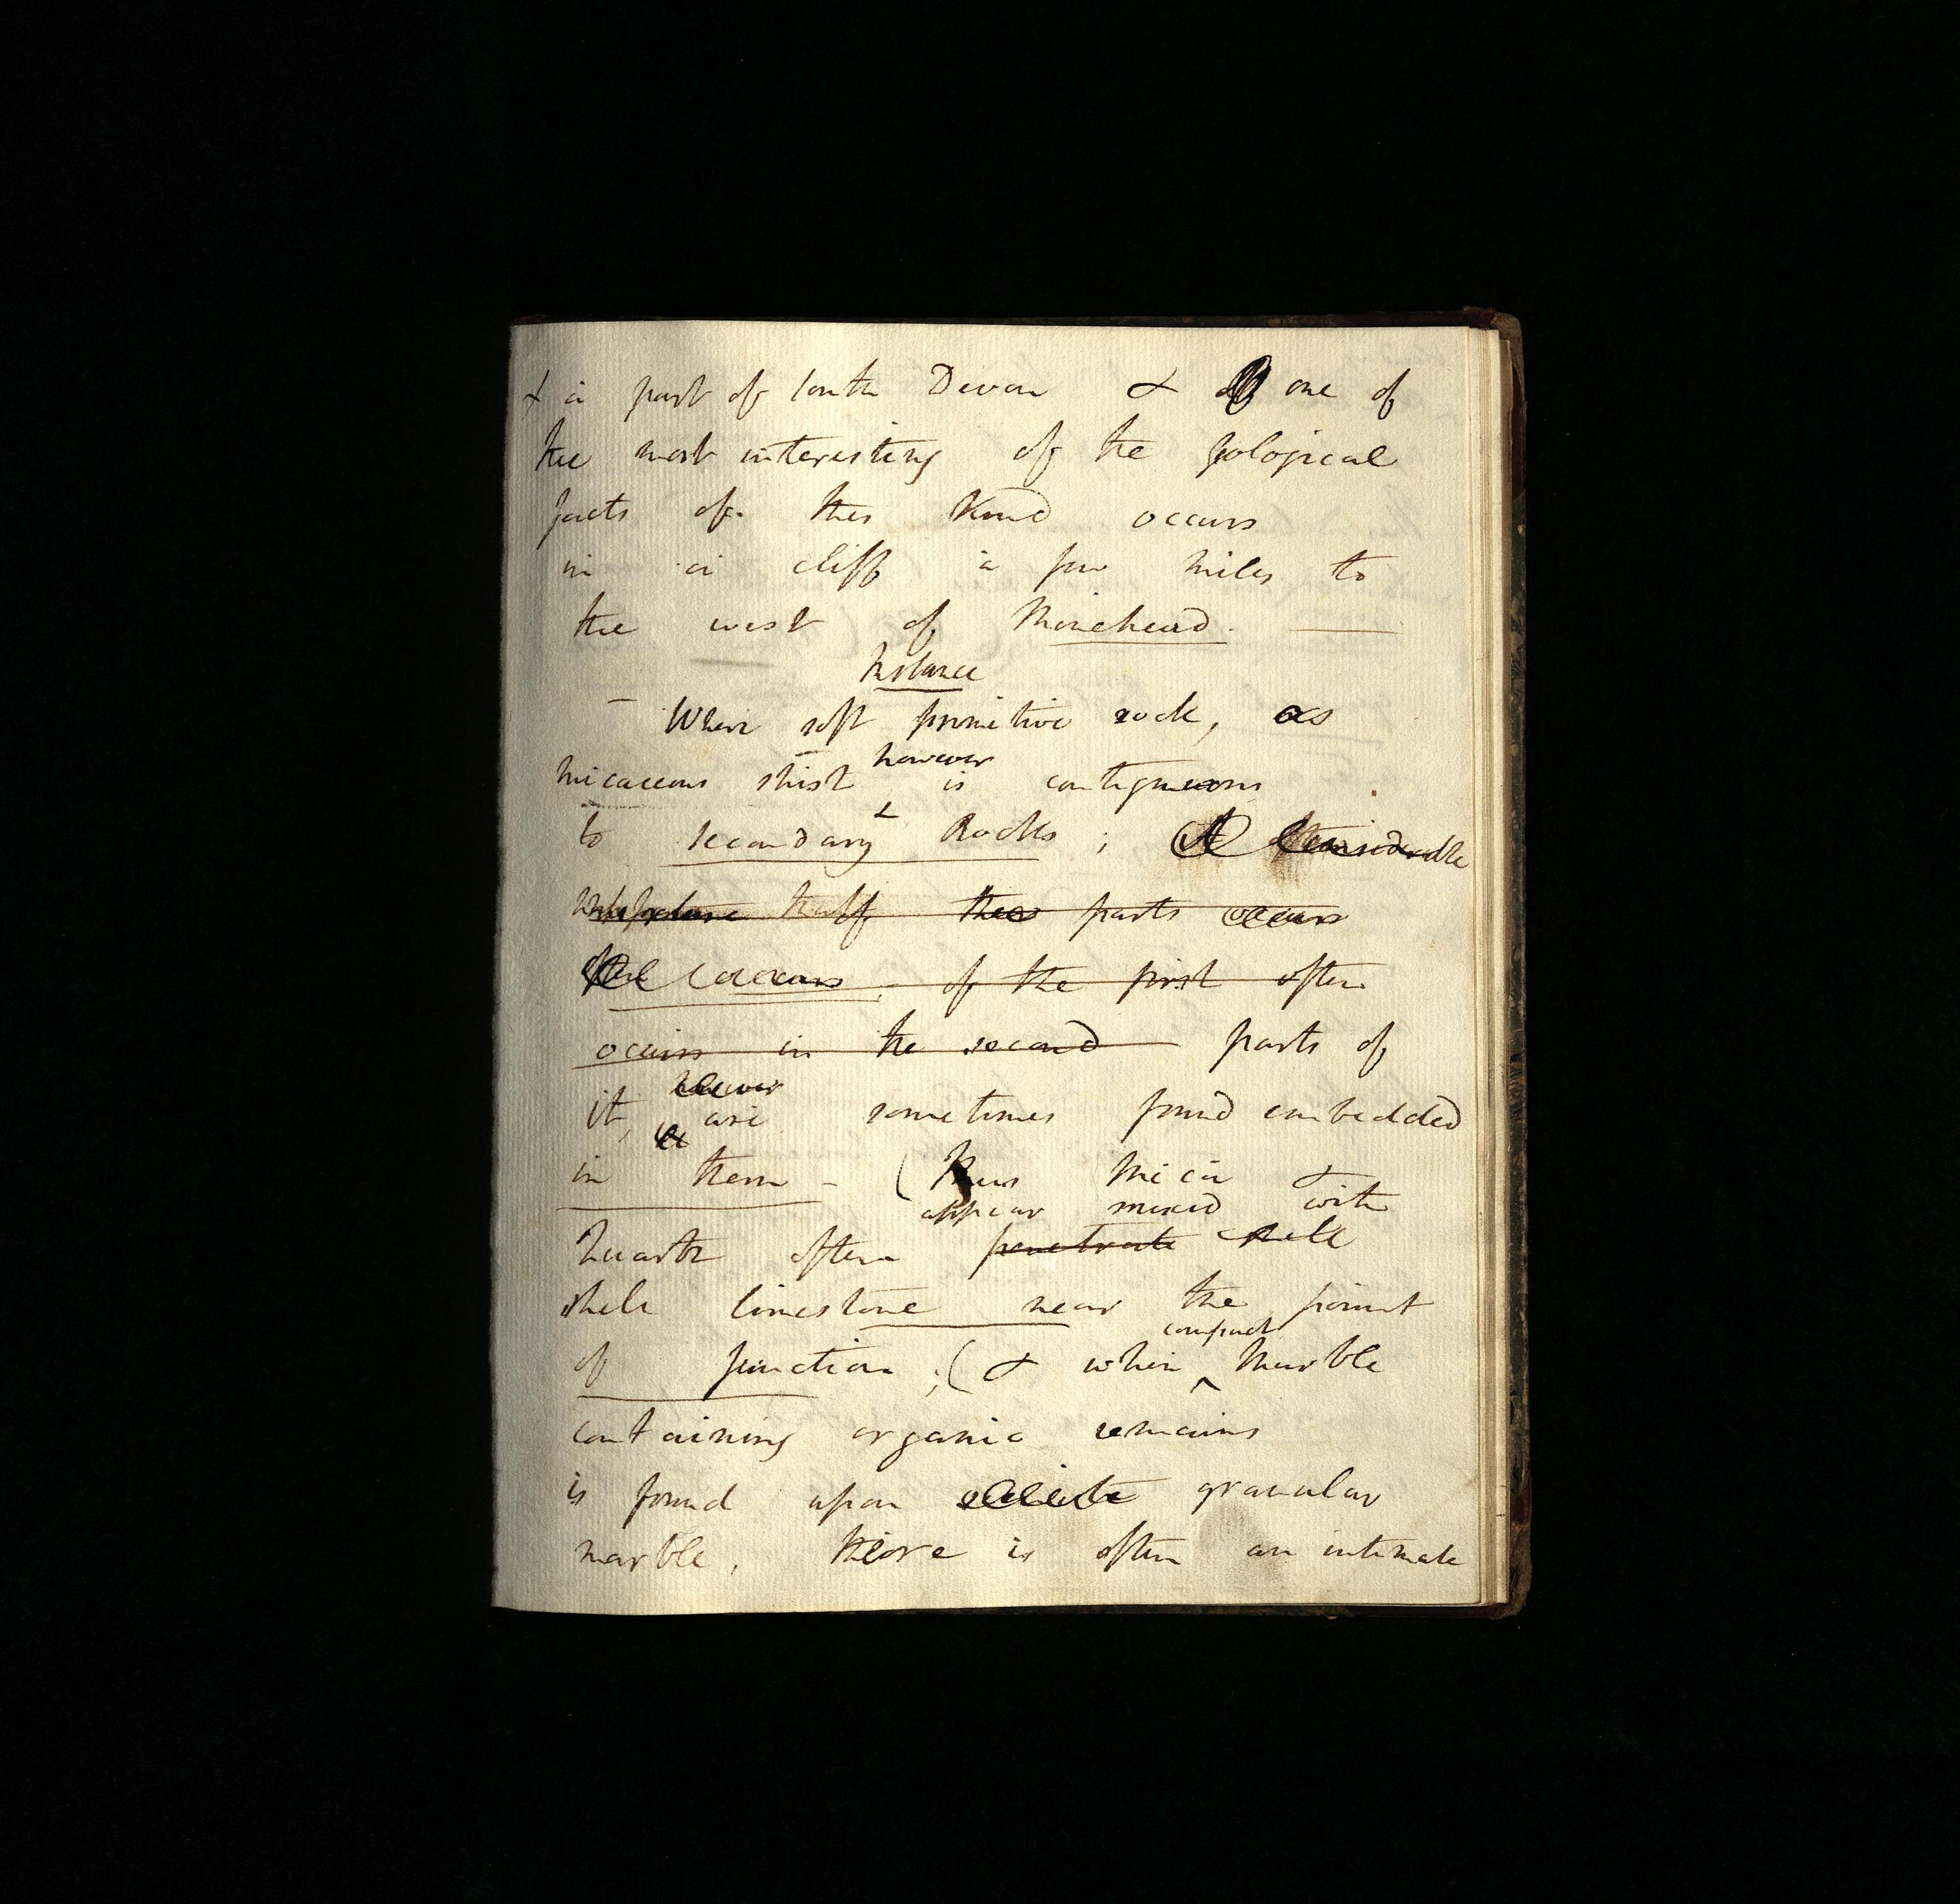 & a part of South Devon & one of
the most interesting of the geological
facts of this Kind occurs
in a cliff a few miles to
the west of Minehead. —
Instance
– When soft primitive rock, as
however
micaceous shist is contiguous
to secondary Rocks; A considerable
the parts occurs
occurs of the first often
occurs in the second parts of
however
it, are sometimes found embedded
in them – (Thus Mica &
appear mixed with
Quartz often penetrate shell
shell limestone near the point
compact
of junction; (& when ^ Marble
containing organic remains
is found upon granular
marble, there is often an intimate